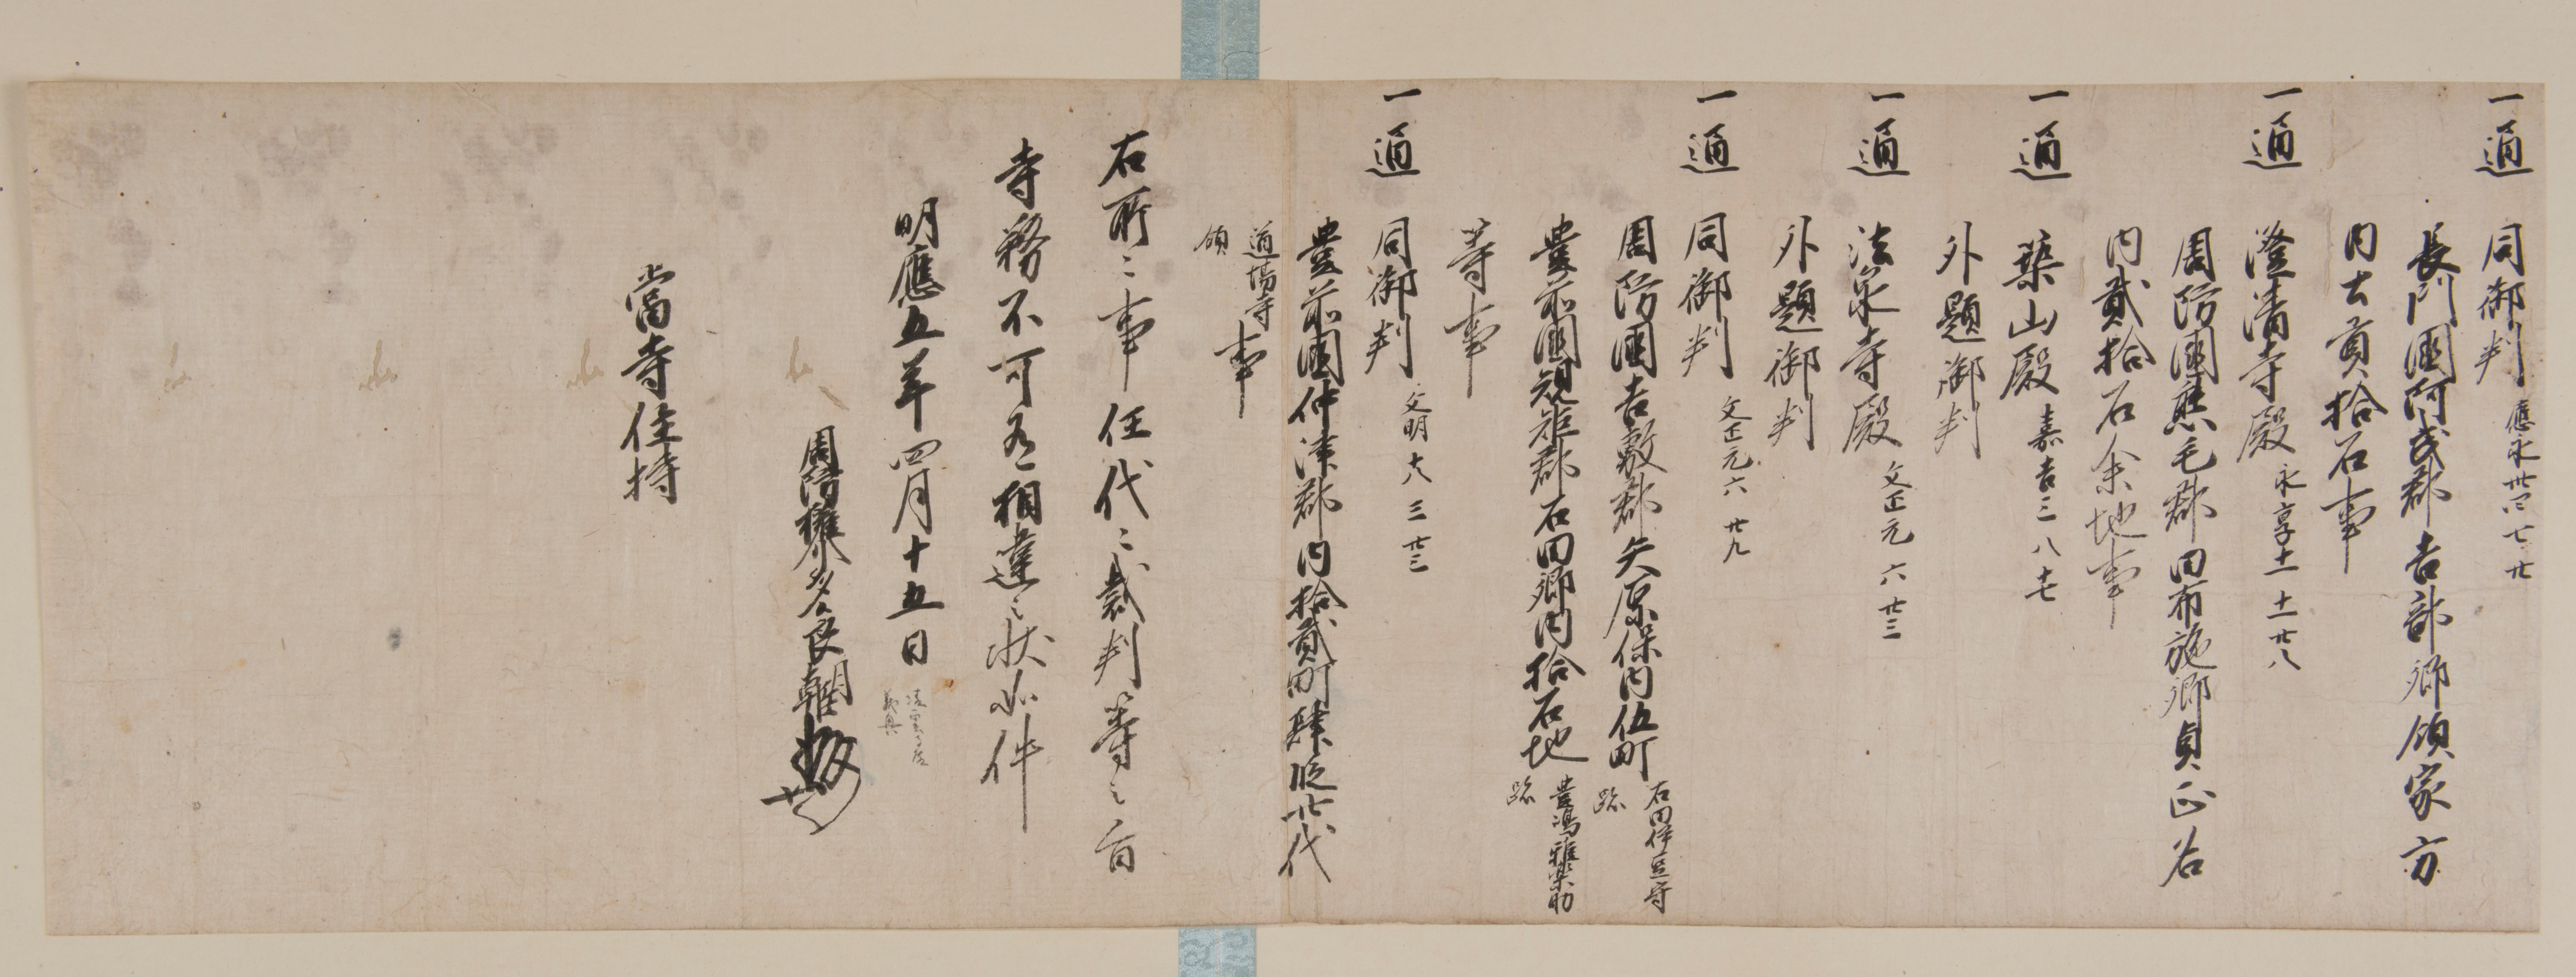 一通 同御判 應永卅四 七 廿
長門國阿武郡吉部郷領家方
内士貢拾石事
一通 澄清寺殿 永享十一 十一 廿八
周防國熊毛郡田布施郷貞正名
内貳拾石余地事
一通 築山殿 嘉吉三 八 十七
外題御判
一通 法泉寺殿 文正元 六 廿三
外題御判
一通 同御判 文正元 六 廿九
周防國吉敷郡矢原保内伍町 石田伊豆守
跡
豊前國規矩郡石田郷内拾石地 豊嶋雅楽助
跡
等事
一通 同御判 文明十八 三 廿三
豊前國仲津郡内拾貳町肆段廿代
道場寺
領 事
右所々事任代々裁判等之旨
寺務不可有相違之状如件
明應五年四月十五日
周防權介多々良朝臣
當寺住持